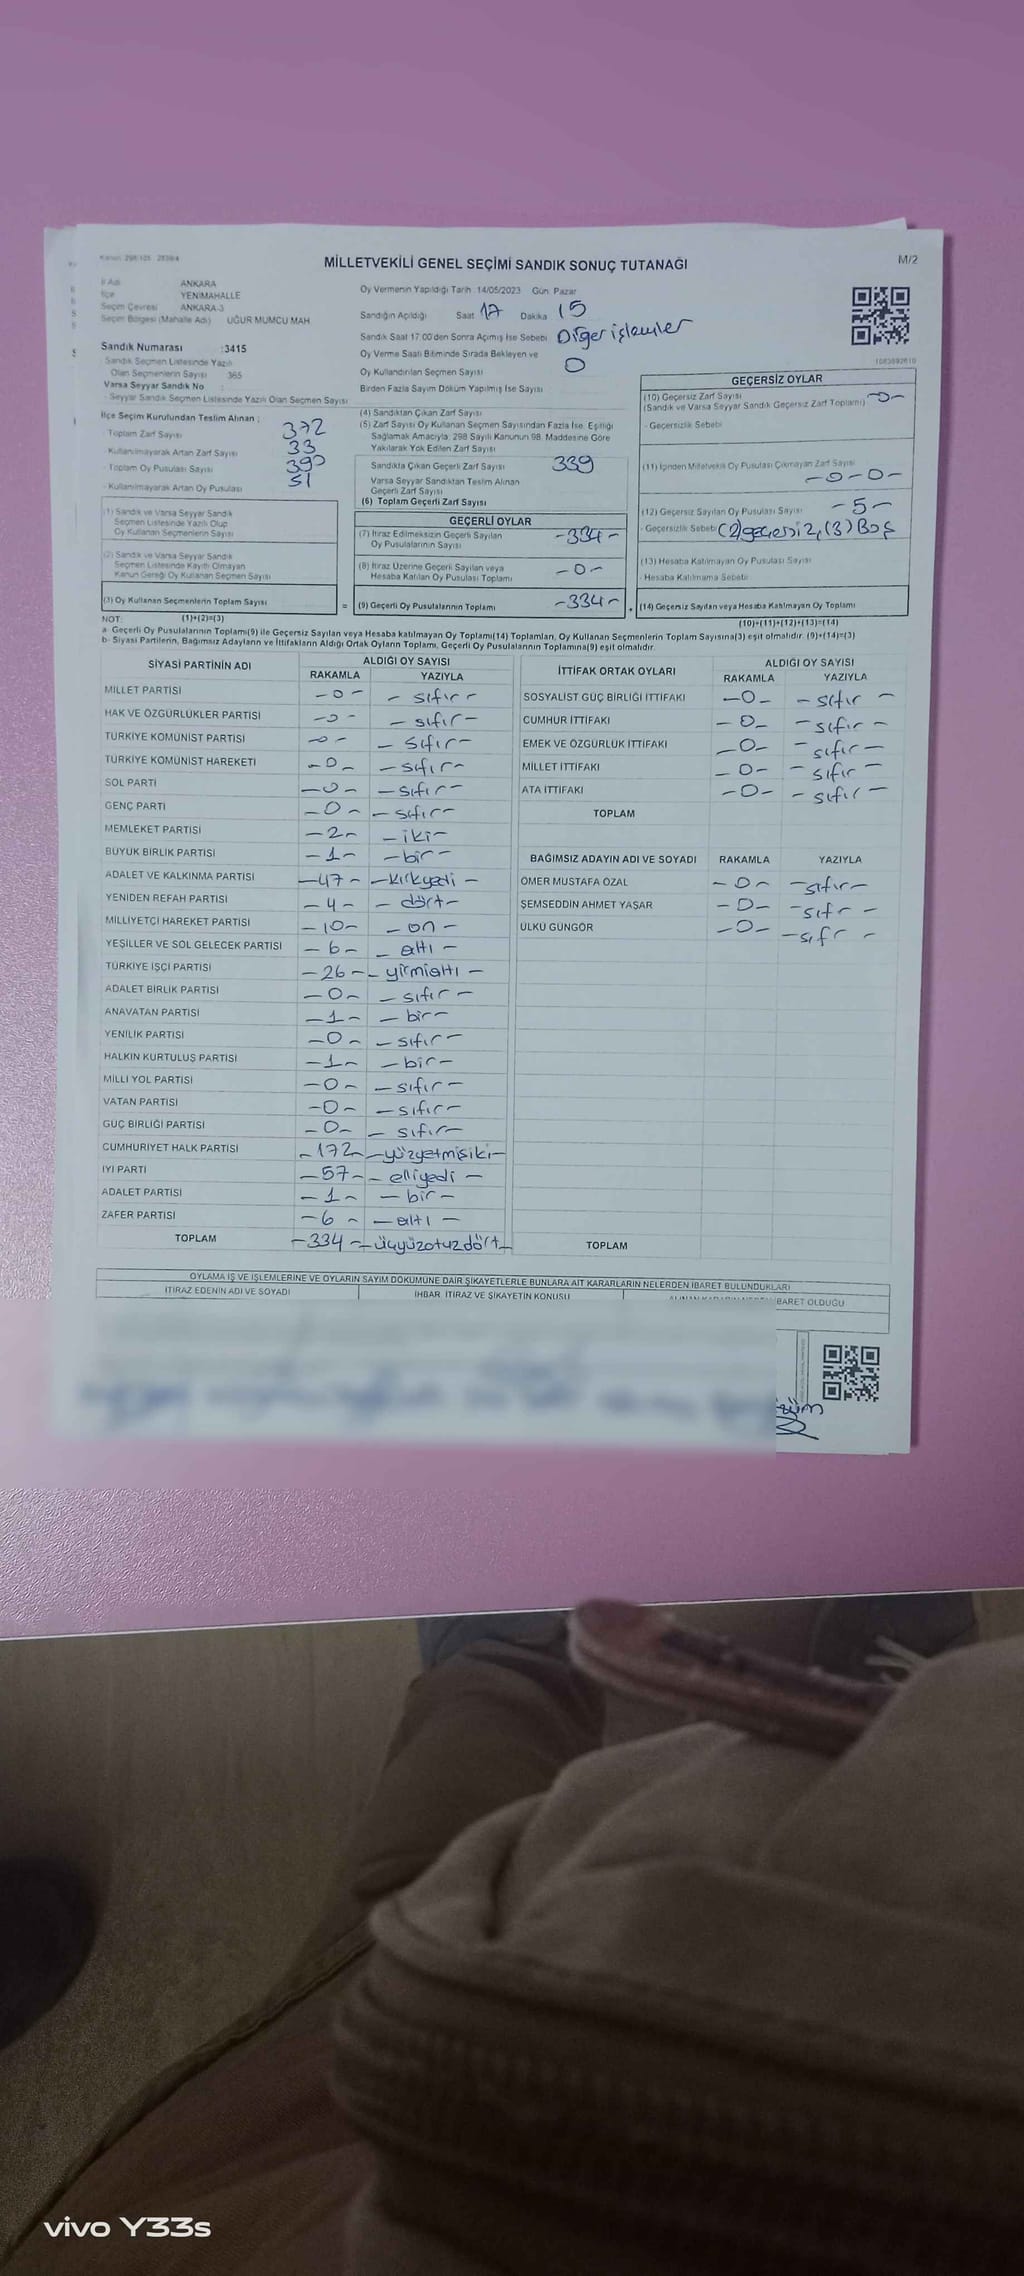 Kanun: 298/105 - 2839/4
MİLLETVEKİLİ GENEL SEÇİMİ SANDIK SONUÇ TUTANAĞI
M/2
İl Adı ANKARA
İlçe YENİMAHALLE
Seçim Çevresi ANKARA-3
Seçim Bölgesi (Mahalle Adı) UĞUR MUMCU MAH
Sandık Numarası :3415
Sandık Seçmen Listesinde Yazılı
Olan Seçmenlerin Sayısı 365
Varsa Seyyar Sandık No
- Seyyar Sandık Seçmen Listesinde Yazılı Olan Seçmen Sayısı
Oy Vermenin Yapıldığı Tarih 14/05/2023 Gün Pazar
Sandığın Açıldığı Saat 17 Dakika 15
Sandık Saat 17:00'den Sonra Açılmış İse Sebebi Diğer işlemler
Oy Verme Saati Bitiminde Sırada Bekleyen ve
Oy Kullandırılan Seçmen Sayısı 0
Birden Fazla Sayım Döküm Yapılmış İse Sayısı
1083892610
İlçe Seçim Kurulundan Teslim Alınan ;
- Toplam Zarf Sayısı 372
- Kullanılmayarak Artan Zarf Sayısı 33
- Toplam Oy Pusulası Sayısı 390
- Kullanılmayarak Artan Oy Pusulası 51
(1) Sandık ve Varsa Seyyar Sandık
Seçmen Listesinde Yazılı Olup
Oy Kullanan Seçmenlerin Sayısı
(2) Sandık ve Varsa Seyyar Sandık
Seçmen Listesinde Kayıtlı Olmayan
Kanun Gereği Oy Kullanan Seçmen Sayısı
(3) Oy Kullanan Seçmenlerin Toplam Sayısı
(4) Sandıktan Çıkan Zarf Sayısı
(5) Zarf Sayısı Oy Kullanan Seçmen Sayısından Fazla İse, Eşitliği
Sağlamak Amacıyla, 298 Sayılı Kanunun 98. Maddesine Göre
Yakılarak Yok Edilen Zarf Sayısı
Sandıkta Çıkan Geçerli Zarf Sayısı 339
Varsa Seyyar Sandıktan Teslim Alınan
Geçerli Zarf Sayısı
(6) Toplam Geçerli Zarf Sayısı
GEÇERLİ OYLAR
(7) İtiraz Edilmeksizin Geçerli Sayılan
Oy Pusulalarının Sayısı -334-
(8) İtiraz Üzerine Geçerli Sayılan veya
Hesaba Katılan Oy Pusulası Toplamı -0-
= (9) Geçerli Oy Pusulalarının Toplamı -334- +
GEÇERSİZ OYLAR
(10) Geçersiz Zarf Sayısı
(Sandık ve Varsa Seyyar Sandık Geçersiz Zarf Toplamı) -0-
- Geçersizlik Sebebi
(11) İçinden Milletvekili Oy Pusulası Çıkmayan Zarf Sayısı
-0-0-
(12) Geçersiz Sayılan Oy Pusulası Sayısı -5-
- Geçersizlik Sebebi (2)geçersiz,(3)Boş
(13) Hesaba Katılmayan Oy Pusulası Sayısı
- Hesaba Katılmama Sebebi
(14) Geçersiz Sayılan veya Hesaba Katılmayan Oy Toplamı
NOT: (1)+(2)=(3) (10)+(11)+(12)+(13)=(14)
a- Geçerli Oy Pusulalarının Toplamı(9) ile Geçersiz Sayılan veya Hesaba katılmayan Oy Toplamı(14) Toplamları, Oy Kullanan Seçmenlerin Toplam Sayısına(3) eşit olmalıdır. (9)+(14)=(3)
b- Siyasi Partilerin, Bağımsız Adayların ve İttifakların Aldığı Ortak Oyların Toplamı, Geçerli Oy Pusulalarının Toplamına(9) eşit olmalıdır.
SİYASİ PARTİNİN ADI ALDIĞI OY SAYISI
RAKAMLA YAZIYLA
MİLLET PARTİSİ -0- -sıfır-
HAK VE ÖZGÜRLÜKLER PARTİSİ -0- -sıfır-
TÜRKİYE KOMÜNİST PARTİSİ -0- -sıfır-
TÜRKİYE KOMÜNİST HAREKETİ -0- -sıfır-
SOL PARTİ -0- -sıfır-
GENÇ PARTİ -0- -sıfır-
MEMLEKET PARTİSİ -2- -iki-
BÜYÜK BİRLİK PARTİSİ -1- -bir-
ADALET VE KALKINMA PARTİSİ -47- -kırkyedi-
YENİDEN REFAH PARTİSİ -4- -dört-
MİLLİYETÇİ HAREKET PARTİSİ -10- -on-
YEŞİLLER VE SOL GELECEK PARTİSİ -6- -altı-
TÜRKİYE İŞÇİ PARTİSİ -26- -yirmialtı-
ADALET BİRLİK PARTİSİ -0- -sıfır-
ANAVATAN PARTİSİ -1- -bir-
YENİLİK PARTİSİ -0- -sıfır-
HALKIN KURTULUŞ PARTİSİ -1- -bir-
MİLLİ YOL PARTİSİ -0- -sıfır-
VATAN PARTİSİ -0- -sıfır-
GÜÇ BİRLİĞİ PARTİSİ -0- -sıfır-
CUMHURİYET HALK PARTİSİ -172- -yüzyetmişiki-
İYİ PARTİ -57- -elliyedi-
ADALET PARTİSİ -1- -bir-
ZAFER PARTİSİ -6- -altı-
TOPLAM -334- -üçyüzotuzdört-
İTTİFAK ORTAK OYLARI ALDIĞI OY SAYISI
RAKAMLA YAZIYLA
SOSYALİST GÜÇ BİRLİĞİ İTTİFAKI -0- -sıfır-
CUMHUR İTTİFAKI -0- -sıfır-
EMEK VE ÖZGÜRLÜK İTTİFAKI -0- -sıfır-
MİLLET İTTİFAKI -0- -sıfır-
ATA İTTİFAKI -0- -sıfır-
TOPLAM
BAĞIMSIZ ADAYIN ADI VE SOYADI RAKAMLA YAZIYLA
ÖMER MUSTAFA ÖZAL -0- -sıfır-
ŞEMSEDDİN AHMET YAŞAR -0- -sıfr-
ÜLKÜ GÜNGÖR -0- -sıfr-
TOPLAM
OYLAMA İŞ VE İŞLEMLERİNE VE OYLARIN SAYIM DÖKÜMÜNE DAİR ŞİKAYETLERLE BUNLARA AİT KARARLARIN NELERDEN İBARET BULUNDUKLARI
İTİRAZ EDENİN ADI VE SOYADI İHBAR İTİRAZ VE ŞİKAYETİN KONUSU İBARET OLDUĞU
vivo Y33s